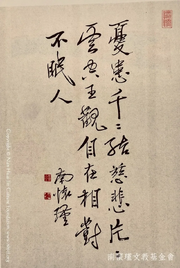 憂患千々結慈悲片々
雲空王觀自在相對
不眠人
南懷瑾
南懷瑾文教基金會